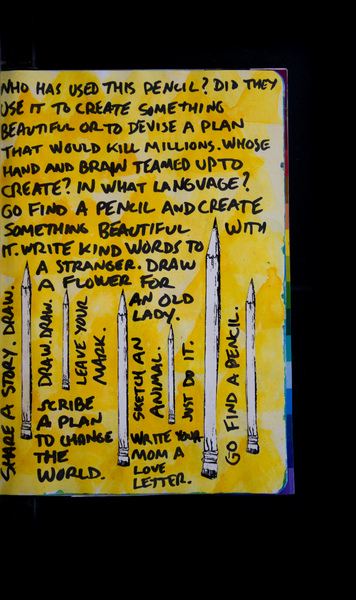 WHO HAS USED THIS PENCIL? DID THEY
USE IT TO CREATE SOMETHING
BEAUTIFUL OR TO DEVISE A PLAN
THAT WOULD KILL MILLIONS. WHOSE
HAND AND BRAIN TEAMED UP TO
CREATE? IN WHAT LANGUAGE?
GO FIND A PENCIL AND CREATE
SOMETHING BEAUTIFUL WITH
IT. WRITE KIND WORDS TO
A STRANGER. DRAW
A FLOWER FOR
AN OLD
LADY.
SHARE A STORY. DRAW.
DRAW. DRAW.
LEAVE YOUR
MARK.
SCRIBE
A PLAN
TO CHANGE
THE
WORLD.
SKETCH AN
ANIMAL.
JUST DO IT.
WRITE YOUR
MOM A
LOVE
LETTER.
GO FIND A PENCIL.